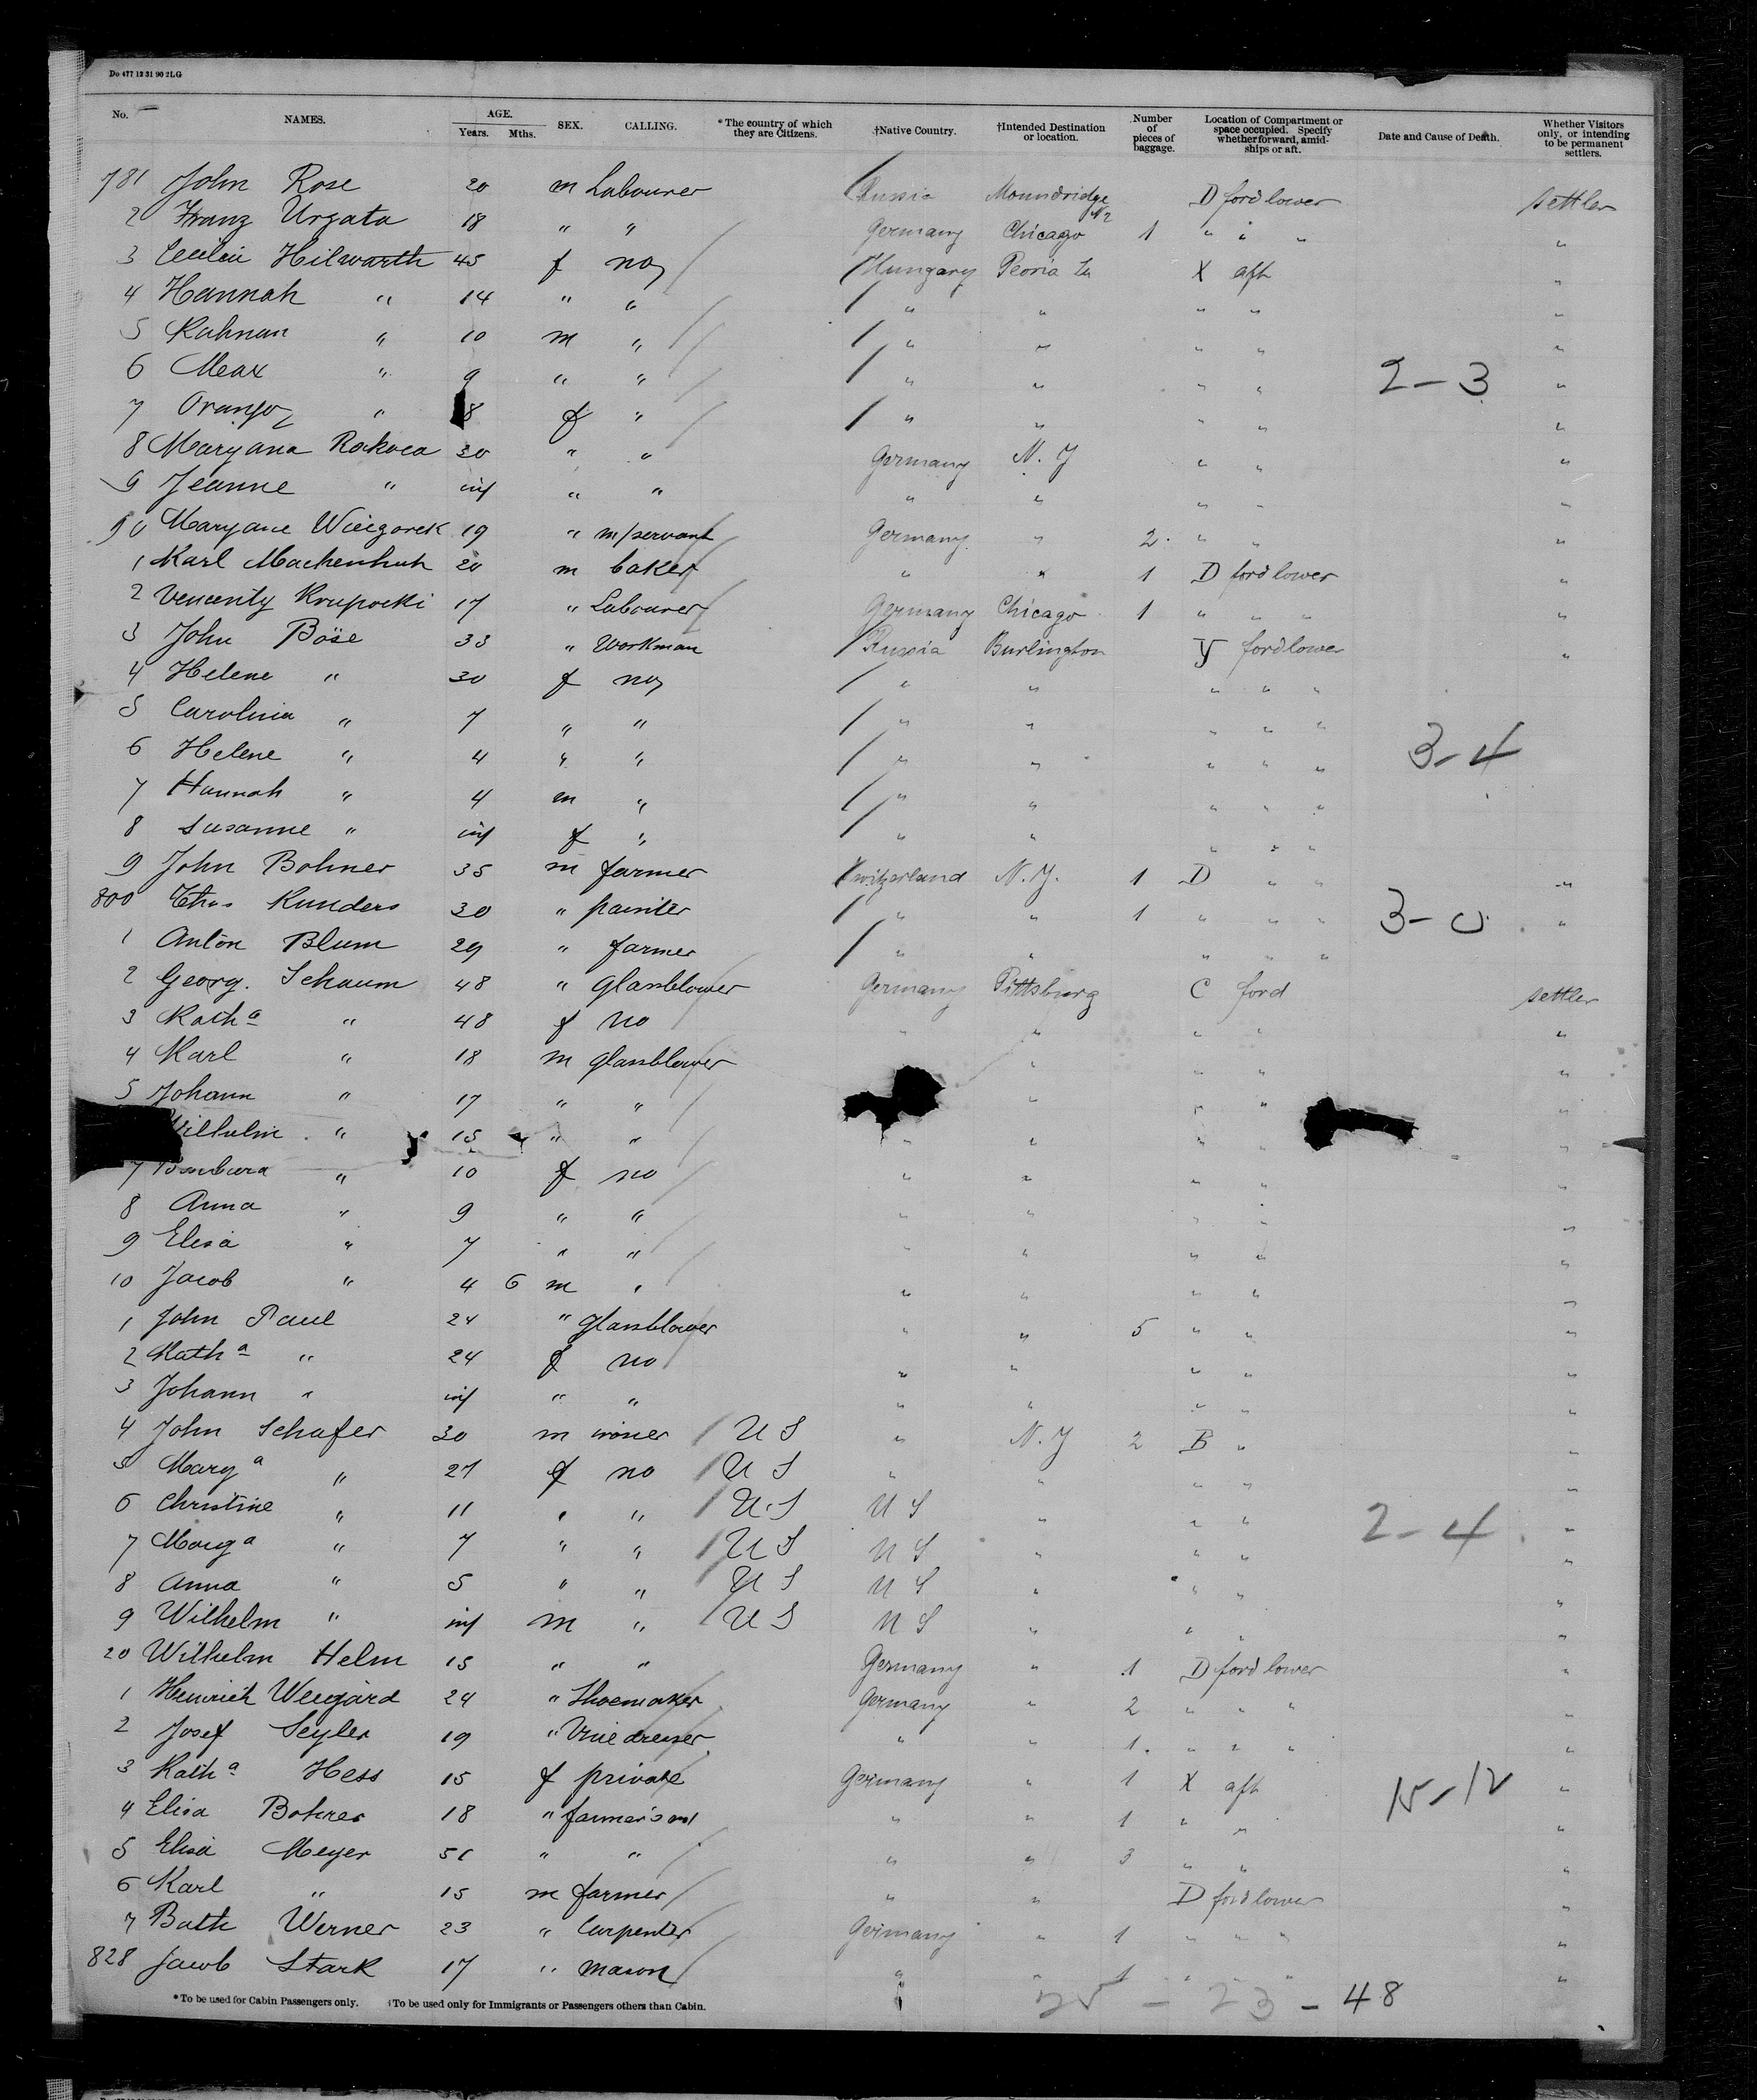 Do 477 12 31 90 2LG
No. NAMES. AGE. Years. Mths. SEX. CALLING. *The country of which they are Citizens. †Native Country. †Intended Destination or location. Number of pieces of baggage. Location of Compartment or space occupied. Specify whether forward, amidships or aft. Date and Cause of Death. Whether Visitors only, or intending to be permanent settlers.
781 John Rose 20 m Labourer Russia Moundridge D ford lower settler
2 Franz Urgata 18 " " Germany Chicago 1 " " " "
3 Hilwarth 45 f no Hungary Peoria X aft "
4 Hannah " 14 " " " " " " "
5 Kahnan " 10 m " " " " " "
6 Meax " 9 " " " " " " 2-3 "
7 " 8 f " " " " " "
8 Maryana Rokoca 30 " " Germany N.Y " " "
9 Jeanne " inf " " " " " " "
90 Maryane Wiezorek 19 " m/servant Germany " 2 " " "
1 Karl Machenhuth 20 m baker " " 1 D ford lower "
2 Vencenty Krupocki 17 " Labourer Germany Chicago 1 " " " "
3 John Böse 33 " Workman Russia Burlington Y ford lower "
4 Helene " 30 f no " " " " "
5 Carolina " 7 " " " " " " "
6 Helene " 4 " " " " " " " 3-4
7 Hannah " 4 m " " " " " "
8 Susanne " inf f " " " " " "
9 John Bohner 35 m farmer Switzerland N.Y. 1 D " " "
800 Kunders 30 " painter " " 1 " " " 3-0 "
1 Anton Blum 29 " farmer " " " " "
2 Georg. Schaum 48 " Glassblower Germany Pittsburg C ford settler
3 Kath a " 48 f no " " " " "
4 Karl " 18 m glassblower " " " "
5 Johann " 17 " " " " " "
Wilhelm " 15 " " " " " " "
7 Barbara " 10 f no " " " " "
8 Anna " 9 " " " " " " "
9 Elisa " 7 " " " " " " "
10 Jacob " 4 6 m " " " " " "
1 John Paul 24 " glassblower " " 5 " " "
2 Kath a " 24 f no " " " " "
3 Johann " inf " " " " " " "
4 John Schafer 30 m US " N.Y 2 B " "
5 Mary a " 27 f no US " " " " "
6 Christine " 11 " " US US " " " "
7 Marg a " 7 " " US US " " " 2-4 "
8 Anna " 5 " " US US " " " "
9 Wilhelm " inf m " US US " " " "
20 Wilhelm Helm 15 " " Germany " 1 D ford lower "
1 Heinrich Weegard 24 " Shoemaker Germany " 2 " " " "
2 Josef Seyler 19 " Vine dresser " " 1 " " " "
3 Kath a Hess 15 f private Germany " 1 X aft 15-12 "
4 Elisa Bohrer 18 " " " 1 " " "
5 Elisa Meyer 51 " " " " 3 " " "
6 Karl " 15 m farmer " " D ford lower "
7 Bath Werner 23 " Carpenter Germany " 1 " " " "
828 Jacob Stark 17 " mason " " 1 " " " "
*To be used for Cabin Passengers only. †To be used only for Immigrants or Passengers others than Cabin.
25 - 23 - 48